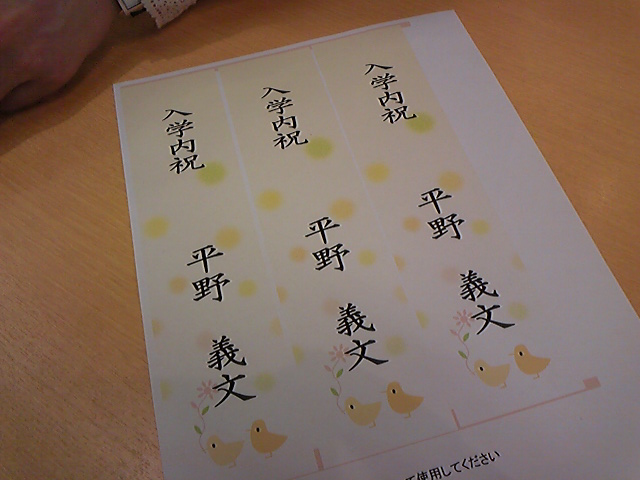 入学内祝
平野
義文
入学内祝
平野
義文
入学内祝
平野
義文
使用してください